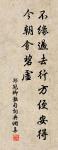 不緣過去行方便安得
今朝會碧虛